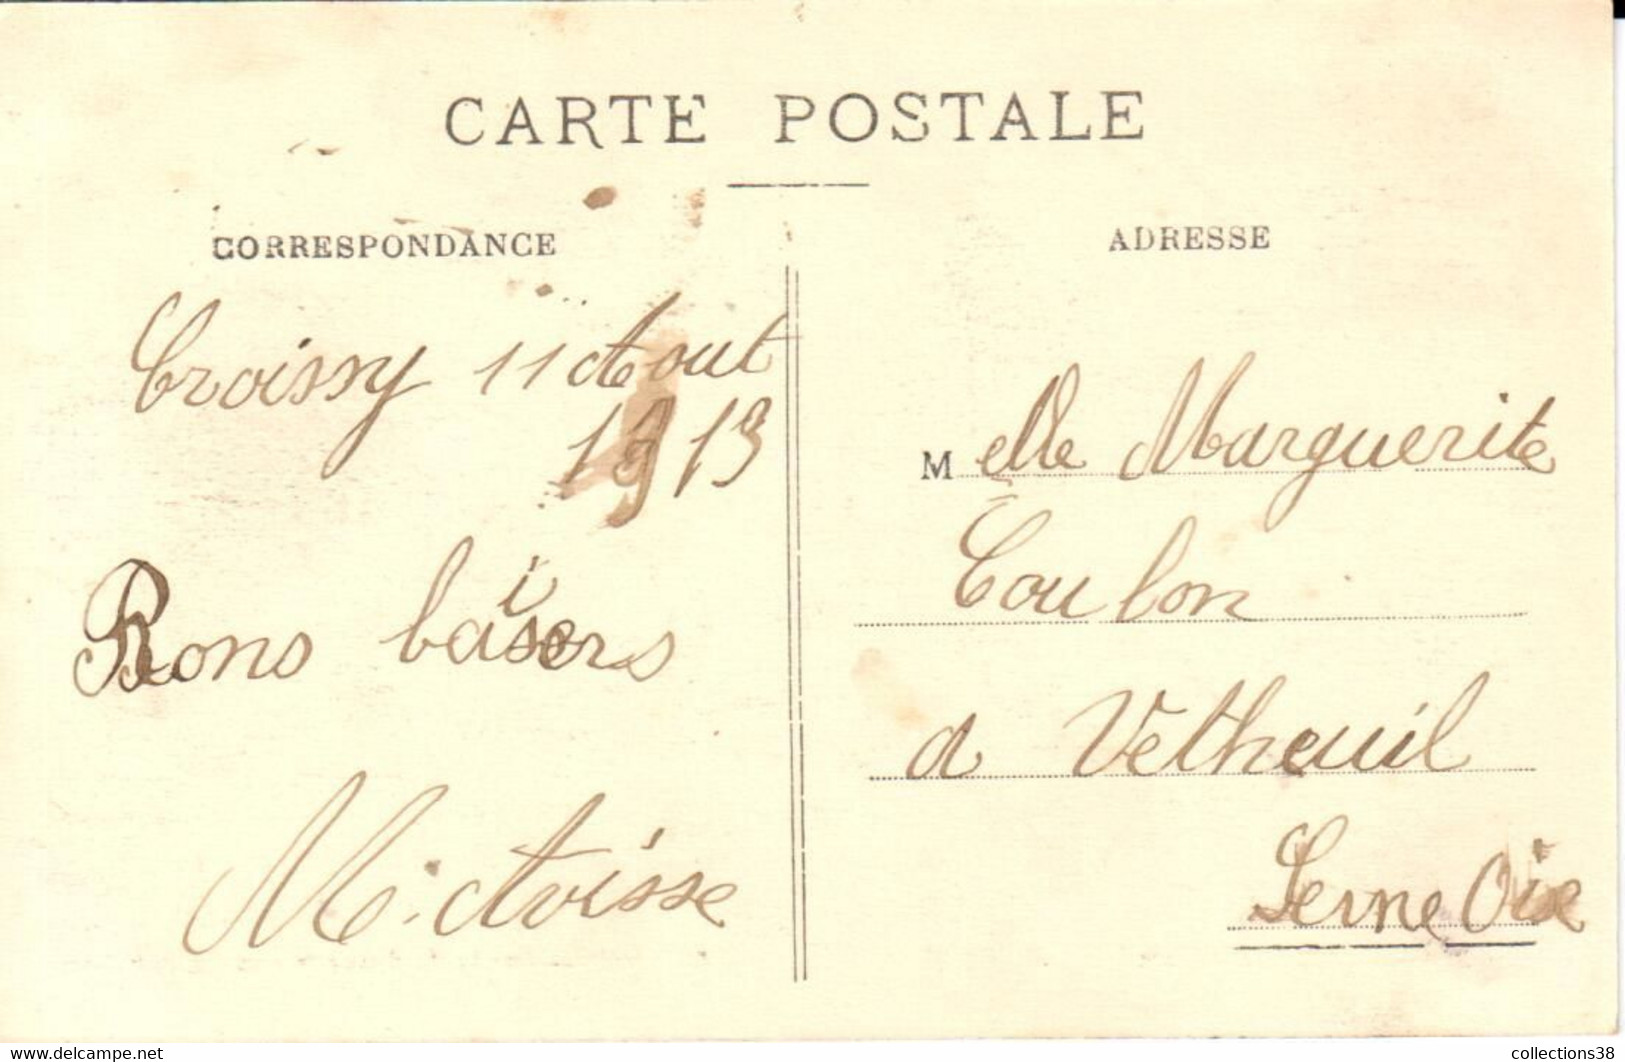 CARTE POSTALE
CORRESPONDANCE
Croissy 11 Aout
1913
Bons baisers
M. Avisse
ADRESSE
Melle Marguerite
Coulon
a Vetheuil
Seine Oise
www.delcampe.net
collections38